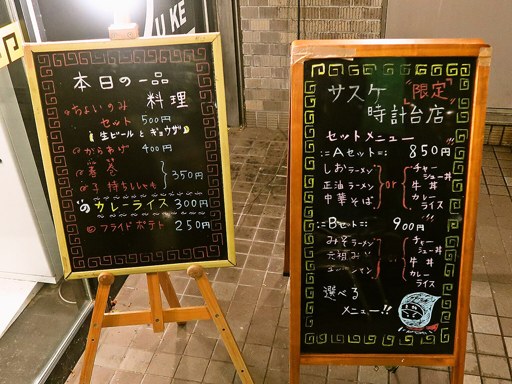 UKE
本日の一品
料理
ちょいのみ
セット 500円
生ビールとギョウザ
からあげ 400円
春巻
子持ちししゃも
350円
カレーライス 300円
フライドポテト 250円
サスケ "限定"
時計台店
セットメニュー
Aセット 850円
しおラーメン
正油ラーメン
中華そば
or
チャーシュー丼
牛丼
カレーライス
Bセット 900円
みそラーメン
元祖みい
チャーシュー丼
牛丼
カレーライス
選べる
メニュー!!